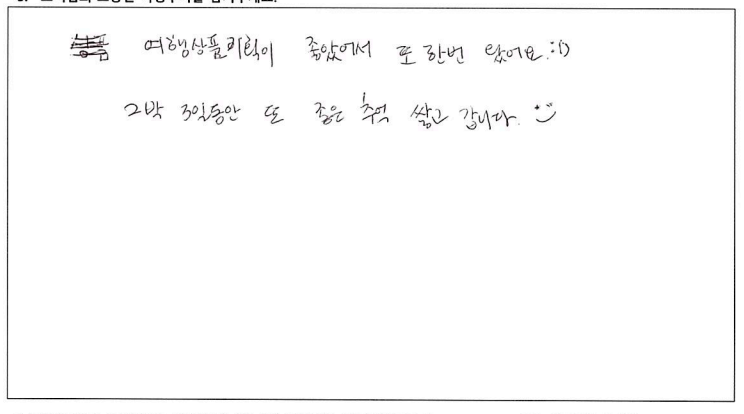 여행상품기획이 좋았어서 또 한번 왔어요 :)
2박 3일동안 또 좋은 추억 쌓고 갑니다.